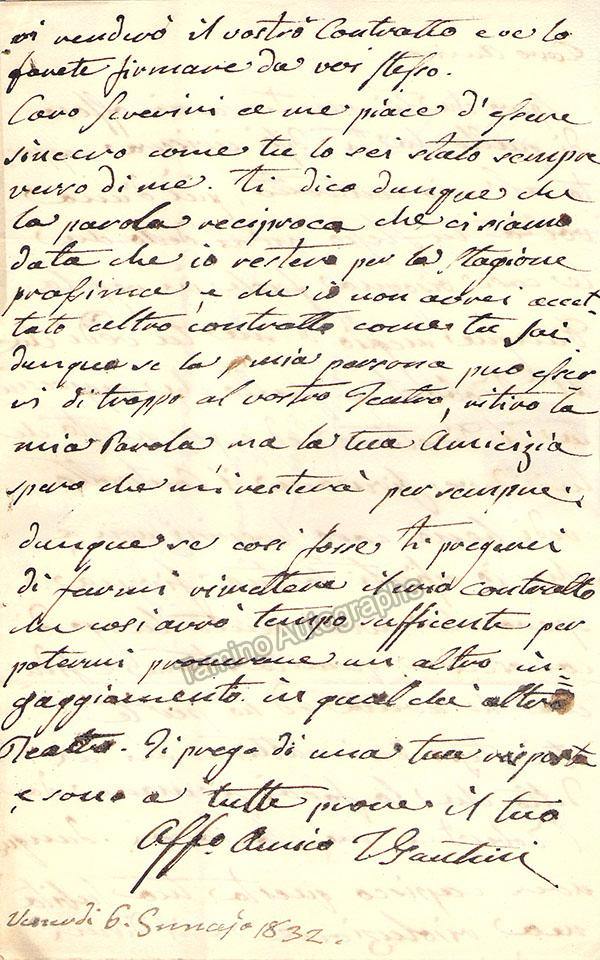 vi renderò il vostro Contratto e ve lo
farete firmare da voi stesso.
Caro Severini a me piace d'essere
sincero come tu lo sei stato sempre
verso di me. ti dico dunque che
la parola reciproca che ci siamo
data che io resterò per la Stagione
prossima, e che io non avrei accet-
tato altro contratto come tu Sai
dunque se la mia persona può esser
vi di troppo al vostro Teatro, ritiro la
mia Parola ma la tua Amicizia
spero che mi resterà per sempre.
dunque se così fosse ti pregerei
di farmi rimettere il mio contratto
che così avrò tempo sufficente per
potermi procurare un altro in=
gaggiamento in qualche altro
Teatro. Ti prego di una tua risposta
e sono a tutte prove il tuo
Affo. Amico
Venerdi 6. Gennajo 1832.
Tamino Autographs